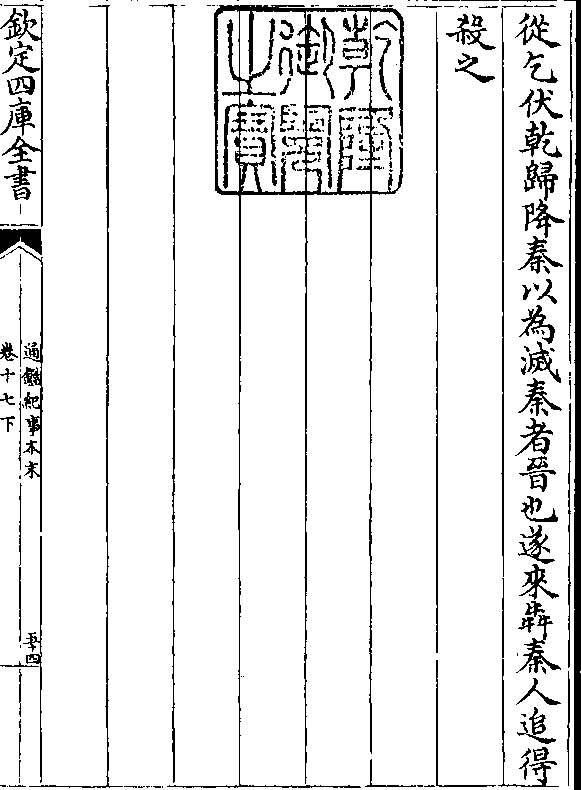 從乞伏乾歸降秦以為滅秦者晉也遂來犇秦人追得
殺之
乾隆御覽之寶
欽定四庫全書
通鑑紀事本末
卷十七下
五十四